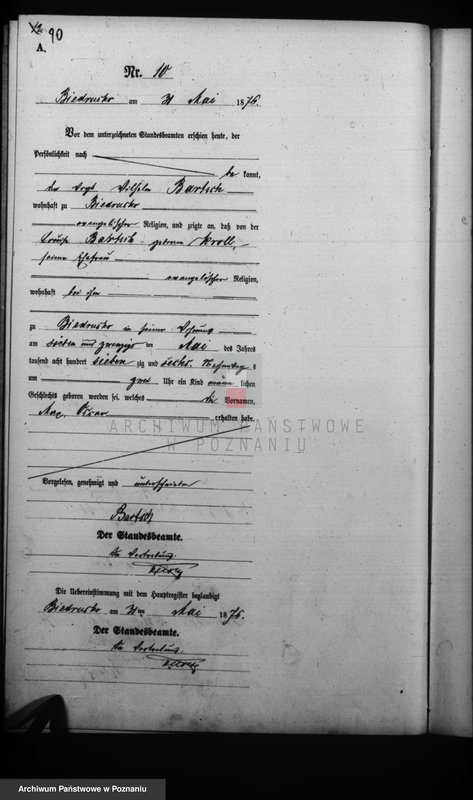 90
A.
Nr. 10
Biedrusko am 31 Mai 1876.
Vor dem unterzeichneten Standesbeamten erschien heute, der
Persönlichkeit nach
be kannt,
der Vogt Wilhelm Bartsch
wohnhaft zu Biedrusko
evangelischer Religion, und zeigte an, daß von der
Louise Bartsch geborene Kroll,
seiner Ehefrau
evangelischer Religion,
wohnhaft bei ihm
zu Biedrusko in seiner Wohnung
am sieben und zwanzigsten Mai des Jahres
tausend acht hundert sieben zig und sechs Nachmittags
um zwei Uhr ein Kind männ lichen
Geschlechts geboren worden sei, welches die Vornamen,
Max Oscar
erhalten habe.
ARCHIWUM PAŃSTWOWE
W POZNANIU
Vorgelesen, genehmigt und unterschrieben
Bartsch
Der Standesbeamte.
In Vertretung.
Die Uebereinstimmung mit dem Hauptregister beglaubigt
Biedrusko am 31ten Mai 1876.
Der Standesbeamte.
In Vertretung.
Archiwum Państwowe w Poznaniu